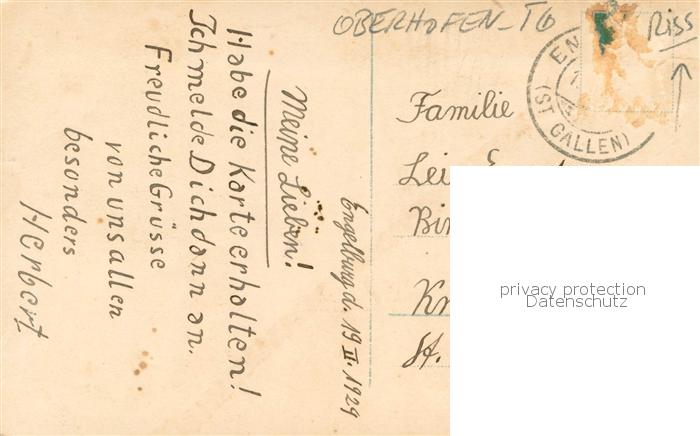 OBERHOFEN-TG
Riss
EN
(ST GALLEN)
Engelburg d. 19 II. 1929
Meine Lieben!
Habe die Karte erhalten!
Ich melde Dich dann an.
Freudliche Grüsse
von uns allen
besonders
Herbert
Familie
St.
privacy protection
Datenschutz